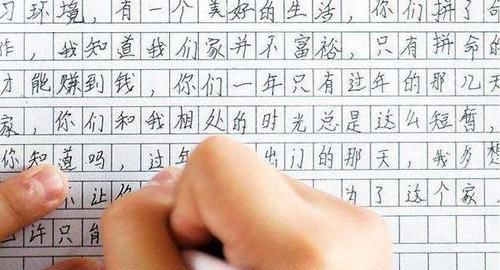 习环境，有一个美好的生活，你们拼了命
作，我知道我们家并不富裕，只有拼命的
才能赚到钱，你们一年只有过年的那几天
家，你们和我相处的时光总是这么短暂，
你知道吗，过年 出门的那天，我多想
不让你 为了这个家
许只能